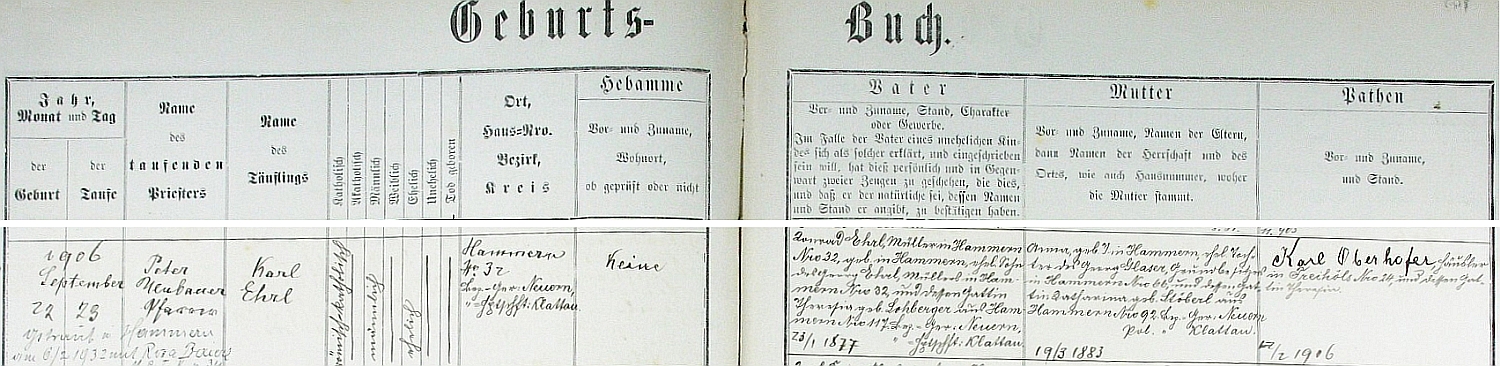 Geburts-
Buch.
Jahr,
Monat und Tag
der
Geburt
der
Taufe
Name
des
taufenden
Priesters
Name
des
Täuflings
Katholisch
Akatholisch
Männlich
Weiblich
Ehelich
Unehelich
Tod geboren
Ort,
Haus-Nro.
Bezirk,
Kreis
Hebamme
Vor- und Zuname,
Wohnort,
ob geprüft oder nicht
Vater
Vor- und Zuname, Stand, Charakter
oder Gewerbe.
Im Falle der Vater eines unehelichen Kin-
des sich als solcher erklärt, und eingeschrieben
sein will, hat dieß persönlich und in Gegen-
wart zweier Zeugen zu geschehen, die dies,
und daß er der natürliche sei, dessen Namen
und Stand er angibt, zu bestätigen haben.
Mutter
Vor- und Zuname, Namen der Eltern,
dann Namen der Herrschaft und des
Ortes, wie auch Hausnummer, woher
die Mutter stammt.
Pathen
Vor- und Zuname,
und Stand.
1906
September
22 23
Getraut
am 6/2 1932 mit Rosa
Peter
Neubauer
Pfarrer
Karl
Ehrl
Hammern
Nr 32
Bez.-Ger. Neuern,
" Hptschft: Klattau
Keine
Konrad Ehrl, Müller in Hammern
Nro 32, geb. in Hammern, ehel. Sohn
des Georg Ehrl, Müllers in Ham-
mern Nro 32, und dessen Gattin
Theresia geb. Lohberger aus Ham-
mern Nro 117. Bez.-Ger: Neuern,
" Hptschft: Klattau.
23/1 1877
Anna, geb. in Hammern, ehel. Toch-
ter des Georg Glaser, Grundbesitzers
in Hammern Nro 66, und dessen Gat-
tin Katharina geb. Stöberl aus
Hammern Nro 92. Bez.-Ger: Neuern
Pol. " Klattau.
19/3 1883
Karl Oberhofer, Häusler
in Freihöls Nro 24, und dessen Gat-
tin Theresia.
1/2 1906